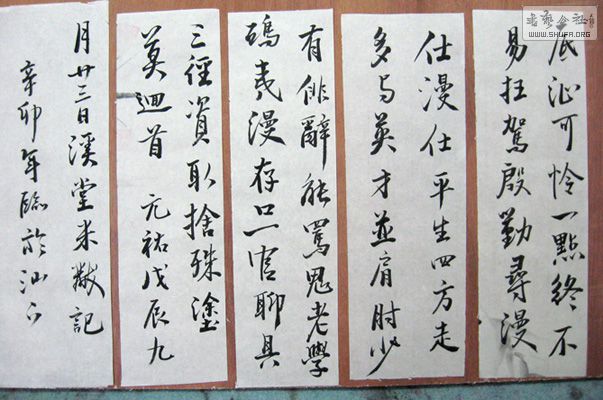 底沚可怜一點終不
易枉駕殷勤尋漫
仕漫仕平生四方走
多与英才並肩肘少
有俳辭能罵鬼老學
鴟夷漫存口一官聊具
三徑資取捨殊塗
莫迴首 元祐戊辰九
月廿三日溪堂米黻記
辛卯年臨於汕
WWW.SHUFA.ORG